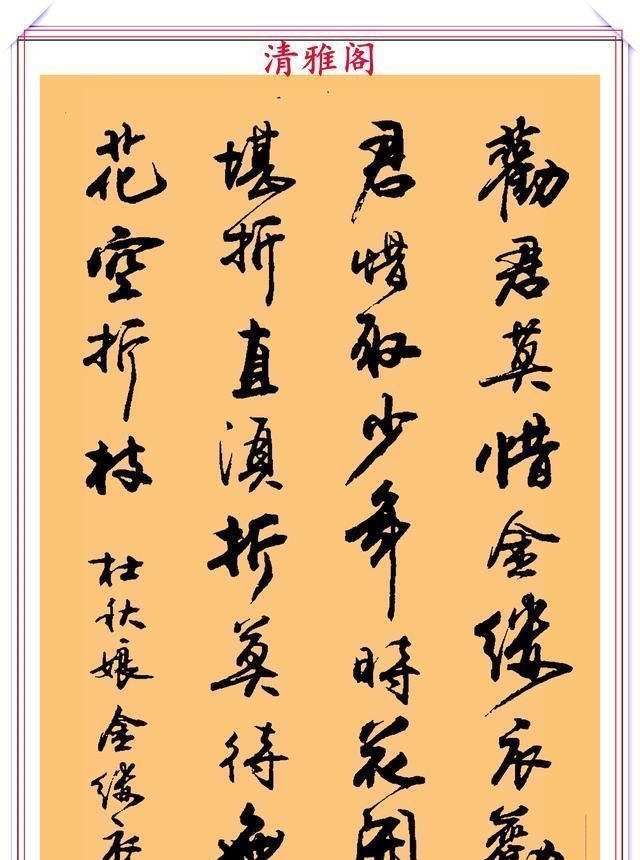 清雅阁
勸君莫惜金缕衣勸
君惜取少年時花開
堪折直須折莫待無
花空折枝
杜秋娘金缕衣